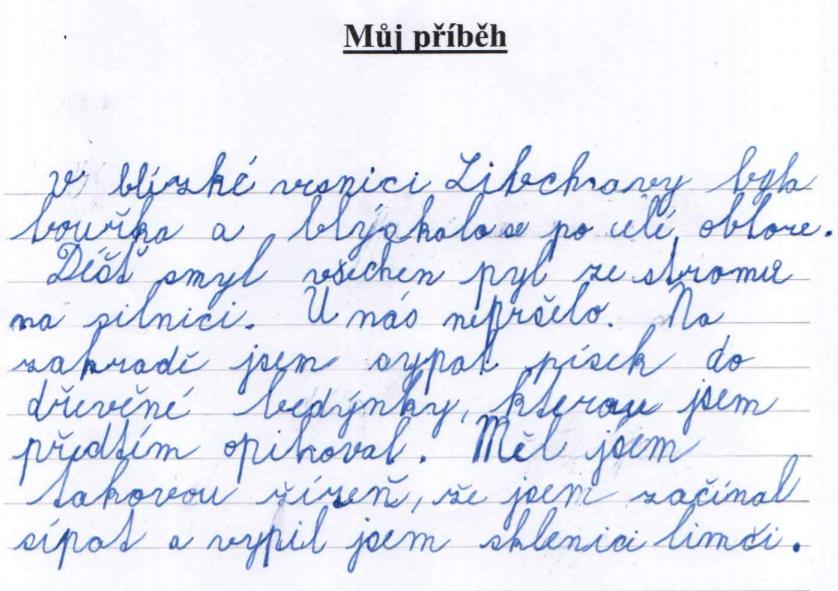 Můj příběh
V blízké vesnici Libchavy byla
bouřka a blýskalo se po celé obloze.
Déšť smyl všechen pyl ze stromů
na silnici. U nás nepršelo. Na
zahradě jsem sypal písek do
dřevěné bedýnky, kterou jsem
předtím opiloval. Měl jsem
takovou žízeň, že jsem začínal
sípat a vypil jsem sklenici